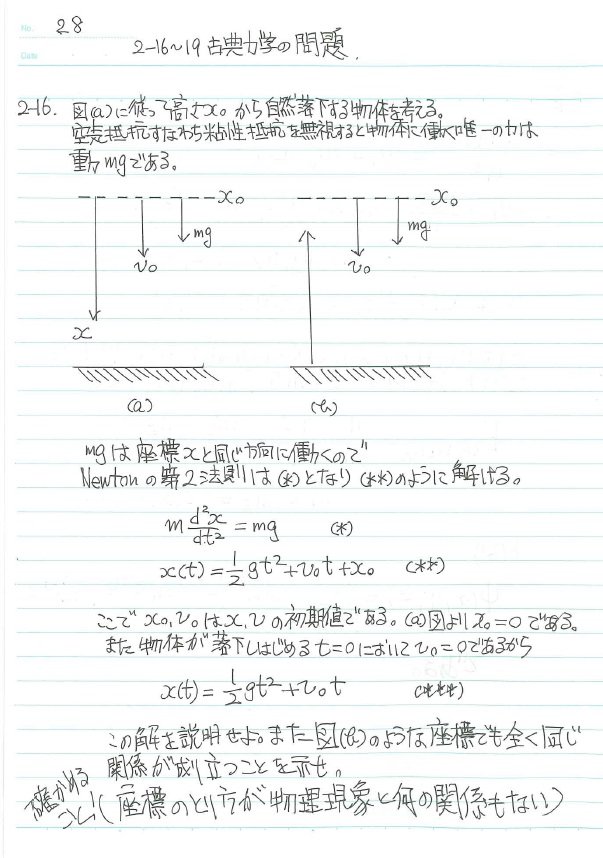 No. 28
Date
2-16~19 古典力学の問題.
2-16. 図(a)に従って高さx₀から自然落下する物体を考える。
空気抵抗すなわち粘性抵抗を無視すると物体に働く唯一の力は
重力mgである。
x₀ x₀
mg mg
v₀ v₀
x
(a) (b)
mgは座標xと同じ方向に働くので
Newtonの第2法則は(*)となり(**)のように解ける。
m d²x/dt² = mg (*)
x(t) = 1/2 gt² + v₀t + x₀ (**)
ここでx₀, v₀はx, vの初期値である。(a)図よりx₀=0である。
また物体が落下しはじめるt=0においてv₀=0であるから
x(t) = 1/2 gt² + v₀t (***)
この解を説明せよ。また図(b)のような座標でも全く同じ
関係が成り立つことを示せ。
確かめる
こと!(座標のとり方が物理現象と何の関係もない)